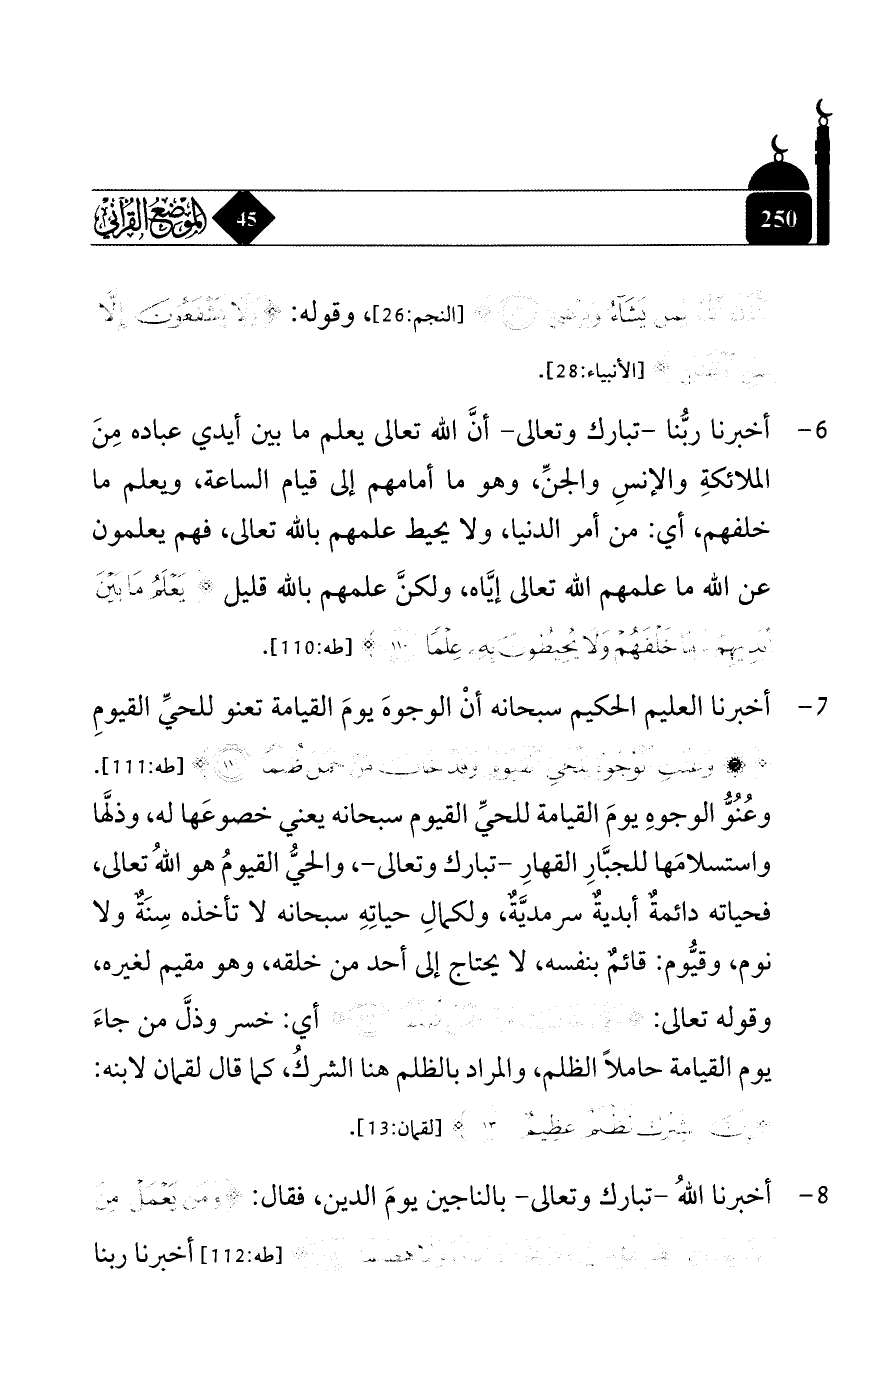 250
45
الموضع القرآني
يَشَآءُ [النجم:26]، وقوله: ﴿وَلَا يَشْفَعُونَ إِلَّا
﴾ [الأنبياء:28].
6- أخبرنا ربُّنا -تبارك وتعالى- أنَّ الله تعالى يعلم ما بين أيدي عباده مِنَ
الملائكةِ والإنسِ والجنِّ، وهو ما أمامهم إلى قيام الساعة، ويعلم ما
خلفهم، أي: من أمر الدنيا، ولا يحيط علمهم بالله تعالى، فهم يعلمون
عن الله ما علمهم الله تعالى إيَّاه، ولكنَّ علمهم بالله قليل ﴿يَعْلَمُ مَا بَيْنَ
أَيْدِيهِمْ وَمَا خَلْفَهُمْ وَلَا يُحِيطُونَ بِهِۦ عِلْمًا ١١٠﴾ [طه:110].
7- أخبرنا العليم الحكيم سبحانه أنْ الوجوهَ يومَ القيامة تعنو للحيِّ القيومِ
وَعَنَتِ ٱلْوُجُوهُ لِلْحَىِّ ٱلْقَيُّومِ وَقَدْ خَابَ مَنْ حَمَلَ ظُلْمًا ﴾ [طه:111].
وعُنُوُّ الوجوهِ يومَ القيامة للحيِّ القيوم سبحانه يعني خصوعَها له، وذلَّها
واستسلامَها للجبَّارِ القهارِ -تبارك وتعالى-، والحيُّ القيومُ هو اللهُ تعالى،
فحياته دائمةٌ أبديةٌ سرمديَّةٌ، ولكمالِ حياتِهِ سبحانه لا تأخذه سِنَةٌ ولا
نوم، وقيُّوم: قائمٌ بنفسه، لا يحتاج إلى أحد من خلقه، وهو مقيم لغيره،
وقوله تعالى: أي: خسر وذلَّ من جاءَ
يوم القيامة حاملاً الظلم، والمراد بالظلم هنا الشركُ، كما قال لقمان لابنه:
لَظُلْمٌ عَظِيمٌ ١٣﴾ [لقمان:13].
8- أخبرنا اللهُ -تبارك وتعالى- بالناجين يومَ الدين، فقال: ﴿وَمَن يَعْمَلْ مِنَ
[طه:112] أخبرنا ربنا